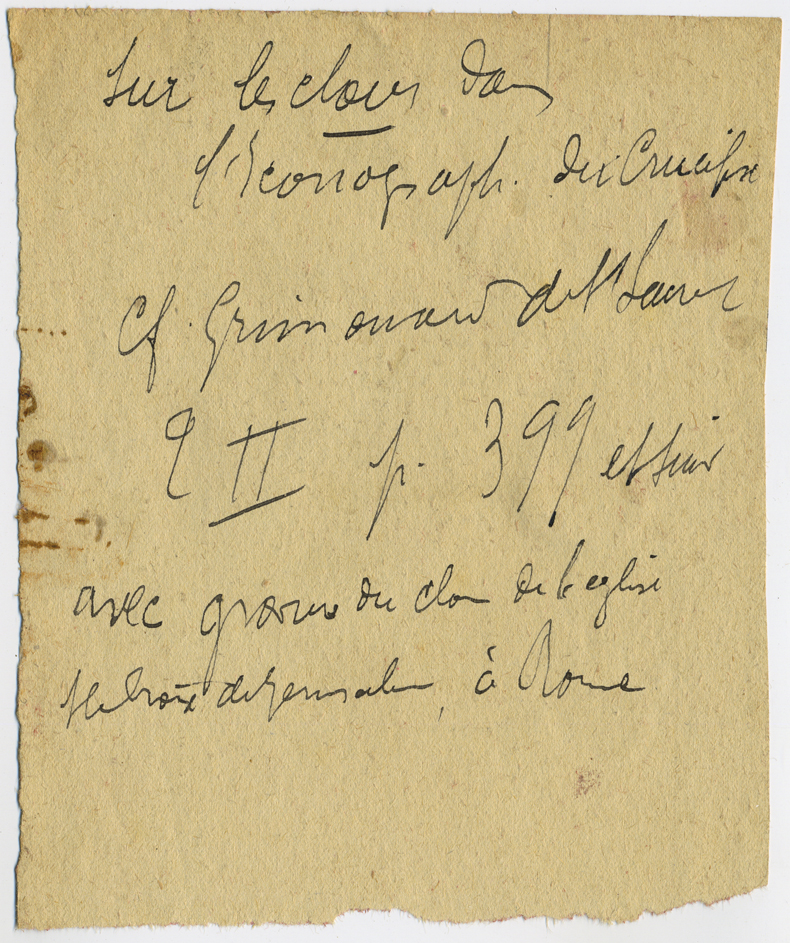 Sur les clous dans
l'Iconograph. du Crucifix
Cf. Grimouard de St Laurent
T II p. 399 et suiv
avec gravure du clou de l'eglise
Ste Croix de Jerusalem, à Rome